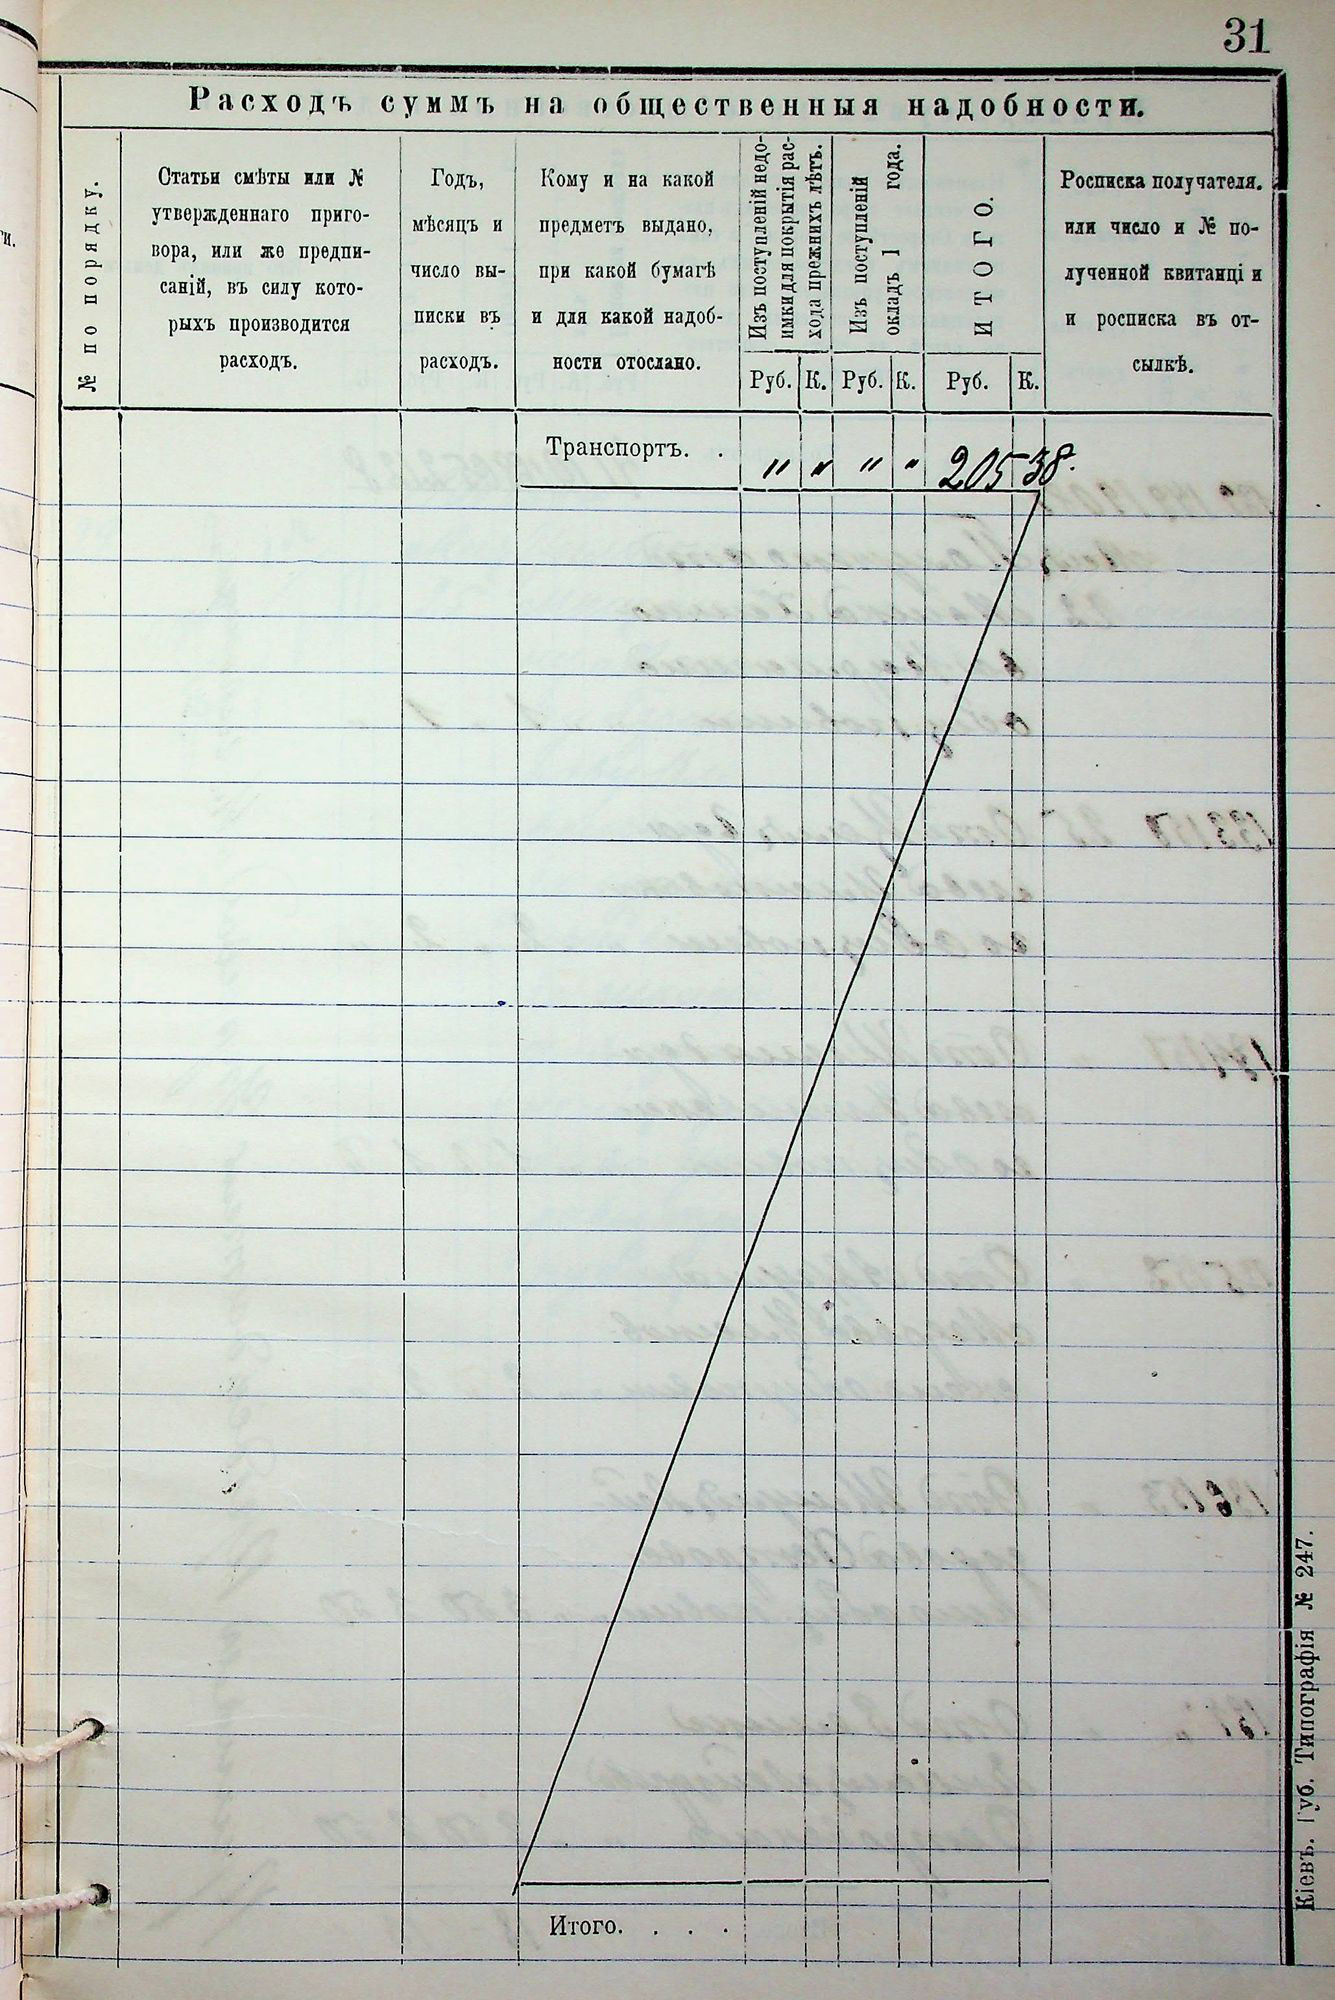 31
Расходъ суммъ на общественныя надобности.
№ по порядку.
Статьи смѣты или №
утвержденнаго приго-
вора, или же предпи-
саній, въ силу кото-
рыхъ производится
расходъ.
Годъ,
мѣсяцъ и
число вы-
писки въ
расходъ.
Кому и на какой
предметъ выдано,
при какой бумагѣ
и для какой надоб-
ности отослано.
Изъ поступленій недо-
имки для покрытія рас-
хода прежнихъ лѣтъ.
Изъ поступленій
окладъ 1 года.
ИТОГО.
Росписка получателя.
или число и № по-
лученной квитанціи
и росписка въ от-
сылкѣ.
Руб. К. Руб. К. Руб. К.
Транспортъ. . " " " " 205 38.
Итого. . . .
Кіевъ. Губ. Типографія № 247.